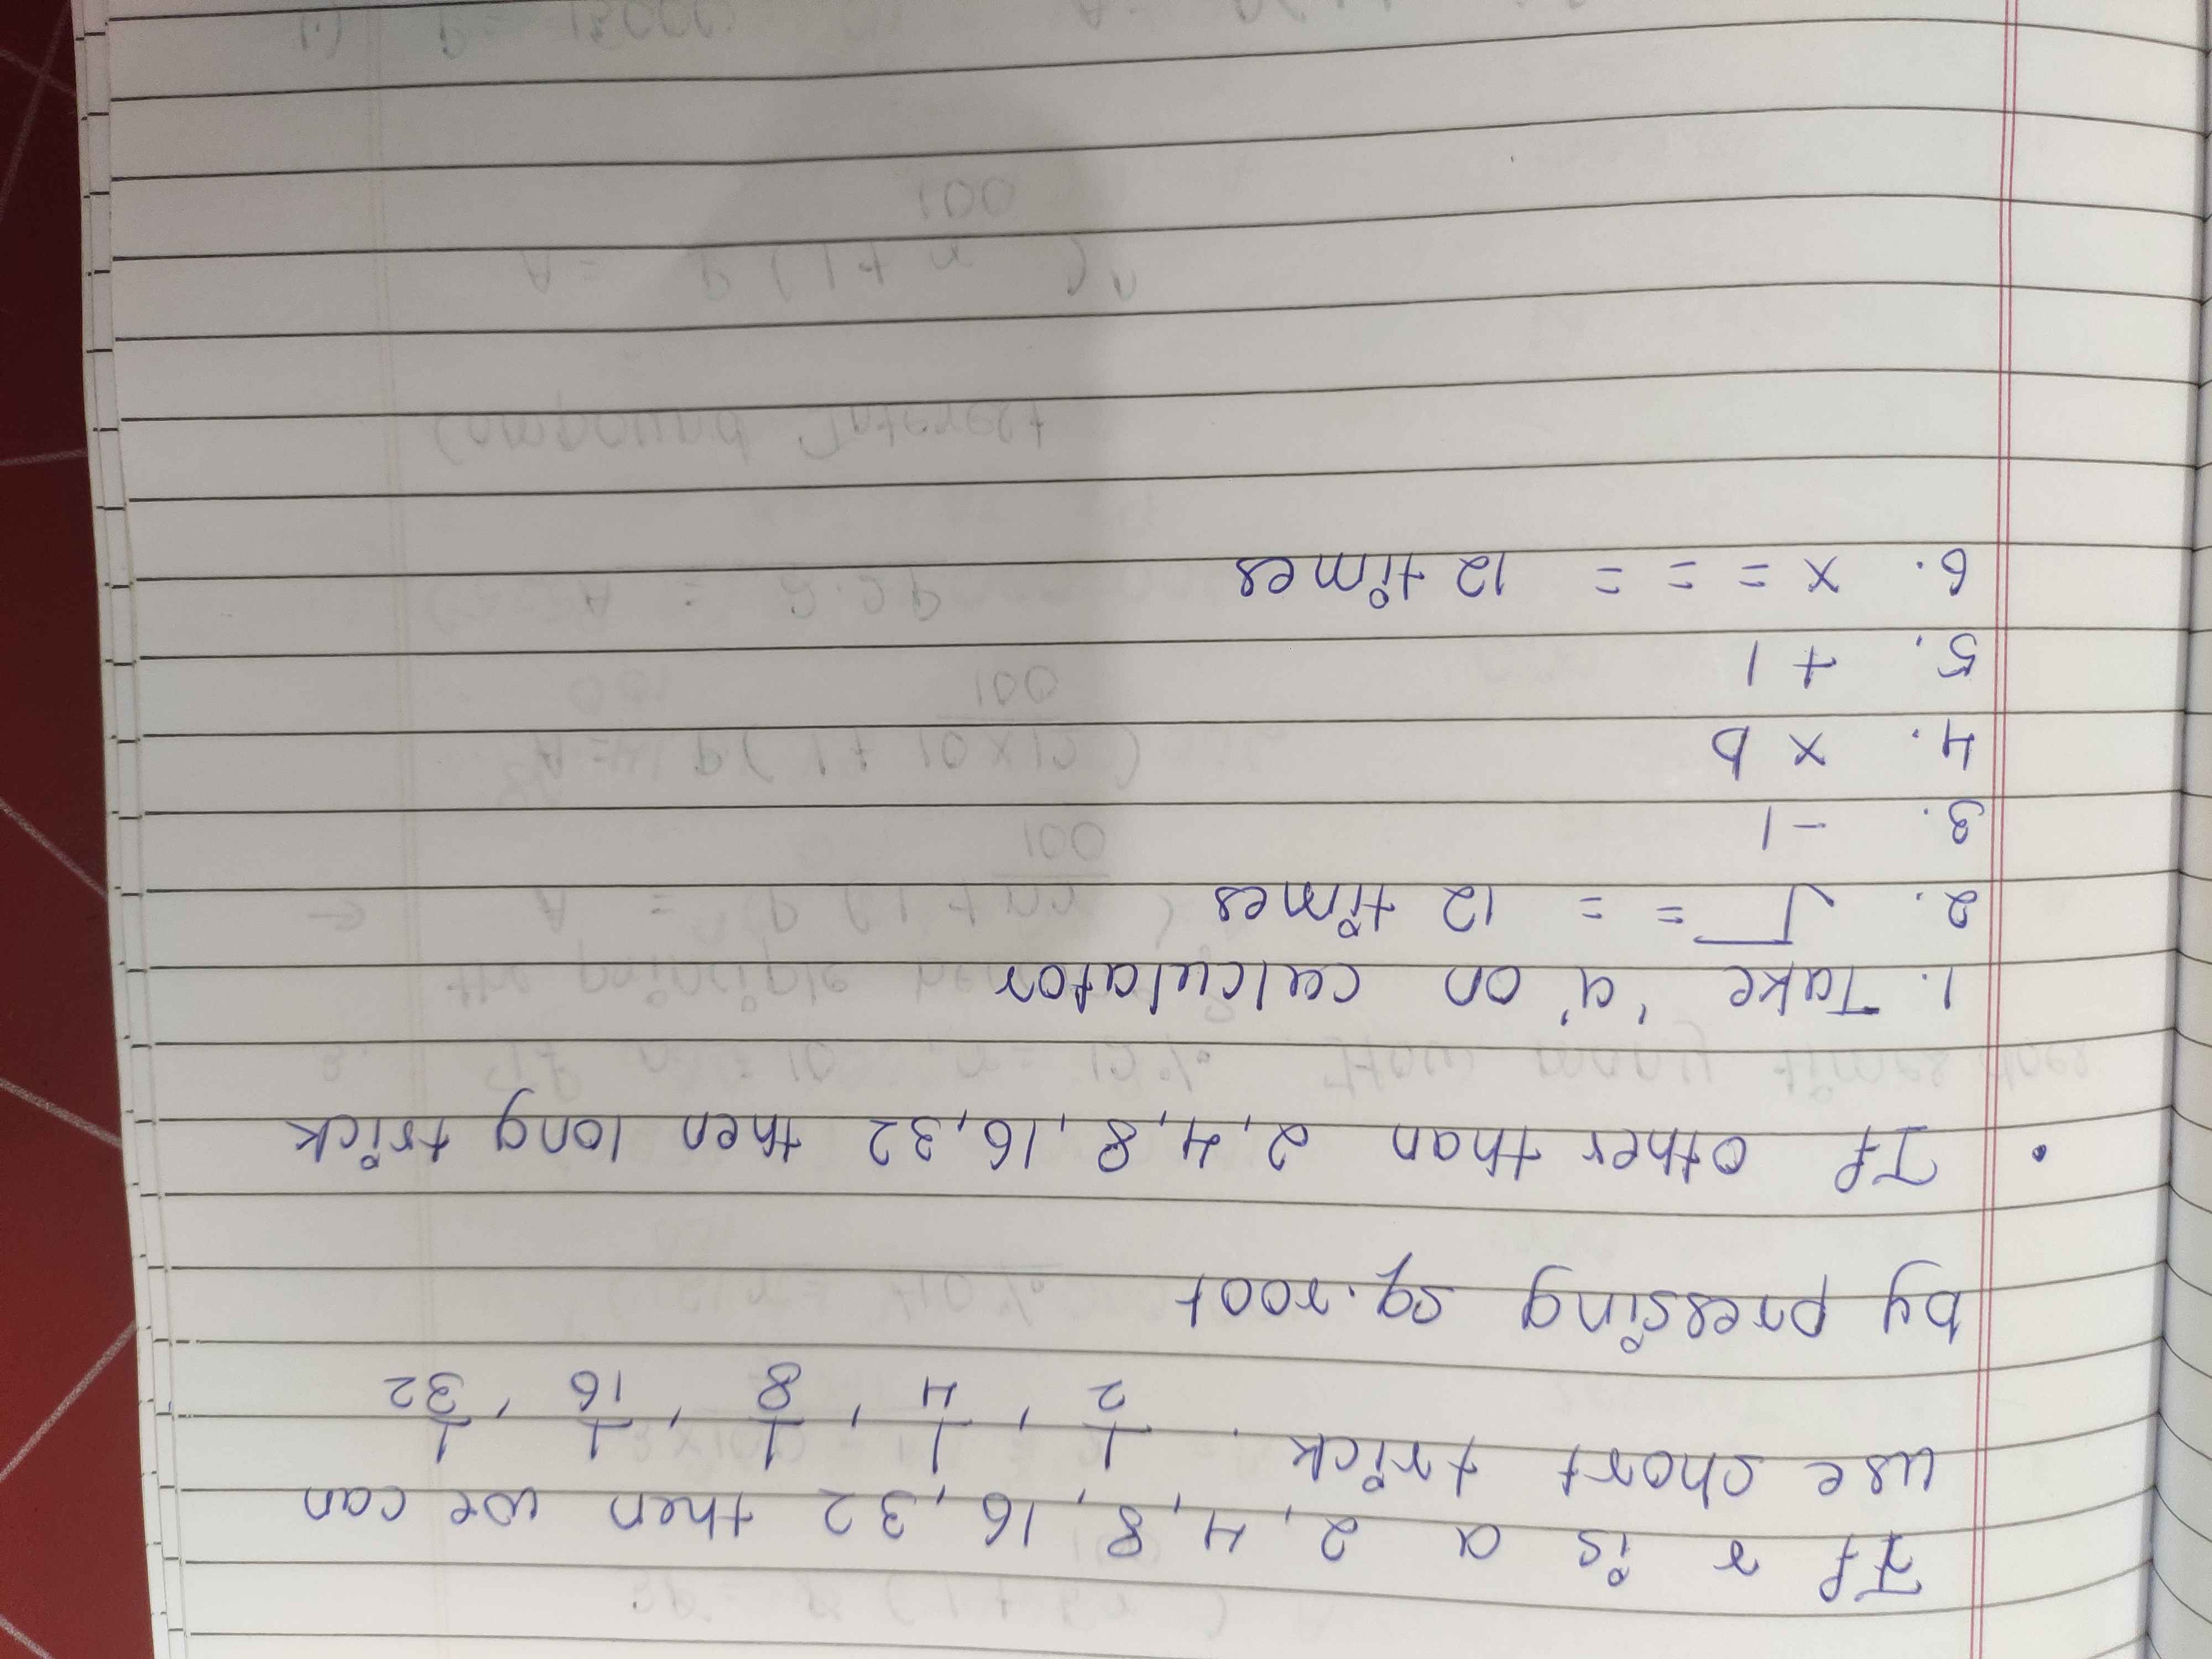 If r is a 2, 4, 8, 16, 32 then we can
use short trick. 1/2, 1/4, 1/8, 1/16, 1/32
by pressing sq. root
• If other than 2, 4, 8, 16, 32 then long trick
1. Take 'a' on calculator
2. √ = = 12 times
3. -1
4. × b
5. + 1
6. × = = = 12 times